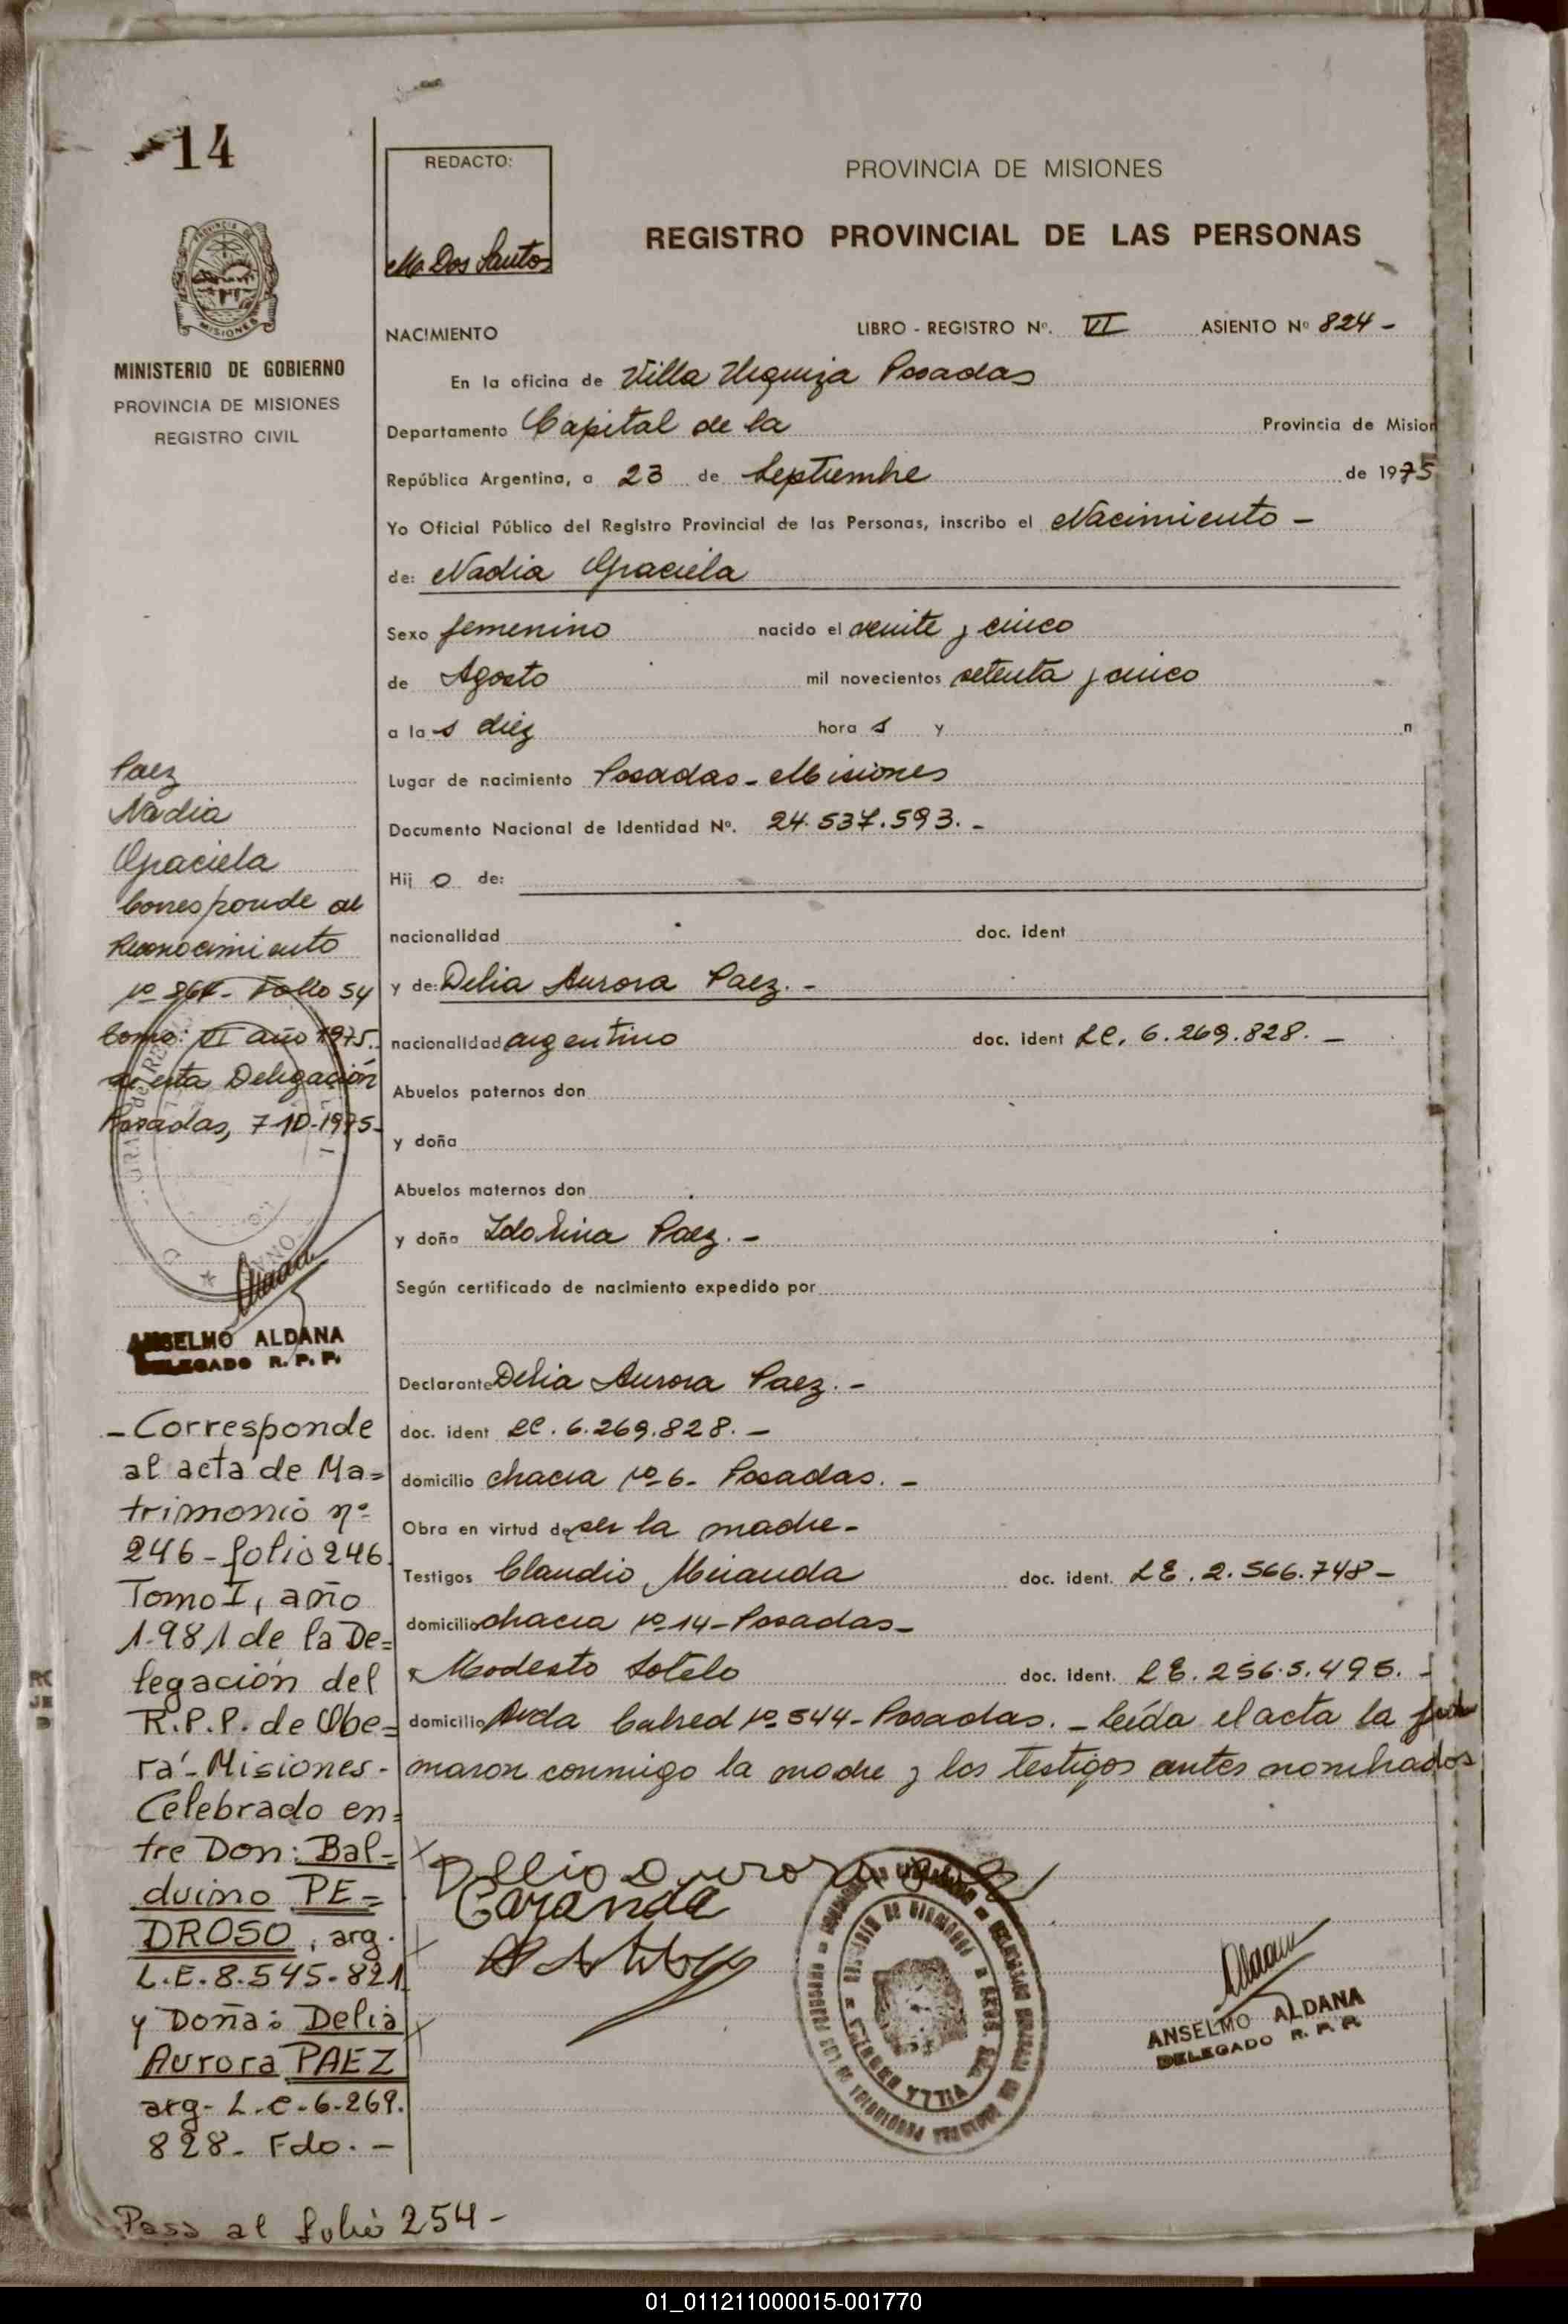 14
REDACTO:
Ma Dos Santos
PROVINCIA DE MISIONES
REGISTRO PROVINCIAL DE LAS PERSONAS
MINISTERIO DE GOBIERNO
PROVINCIA DE MISIONES
REGISTRO CIVIL
NACIMIENTO
LIBRO - REGISTRO Nº. VI ASIENTO Nº 824 -
En la oficina de Villa Urquiza Posadas
Departamento Capital de la Provincia de Mision
República Argentina, a 23 de Septiembre de 1975
Yo Oficial Público del Registro Provincial de las Personas, inscribo el Nacimiento -
de: Nadia Graciela
Sexo femenino nacido el veinte y cinco
de Agosto mil novecientos setenta y cinco
a la s diez hora s y n
Lugar de nacimiento Posadas - Misiones
Documento Nacional de Identidad Nº. 24.537.593. -
Hij o de:
nacionalidad doc. ident
y de: Delia Aurora Paez. -
nacionalidad argentino doc. ident LC. 6.269.828. -
Abuelos paternos don
y doña
Abuelos maternos don
y doña Idolina Paez. -
Según certificado de nacimiento expedido por
Declarante Delia Aurora Paez. -
doc. ident LC. 6.269.828. -
domicilio chacra nº 6- Posadas. -
Obra en virtud de ser la madre-
Testigos Claudio Miranda doc. ident. LE. 2.566.748-
domicilio chacra nº 14-Posadas-
Modesto Sotelo doc. ident. LE. 256.5.495. -
domicilio Avda Cabred nº 544- Posadas. - Leída el acta la fir
maron conmigo la madre y los testigos antes nombrados
Paez
Nadia
Graciela
Corresponde al
Reconocimiento
Folio 54
tomo: VI año 1975.
de esta Delegación
Posadas, 7-10-1975-
ANSELMO ALDANA
DELEGADO R. P. P.
- Corresponde
al acta de Ma=
trimonio nº
246 - folio 246
Tomo I, año
1.981 de la De=
legación del
R.P.P. de Obe=
rá - Misiones -
Celebrado en=
tre Don: Bal=
duino PE=
DROSO, arg.
L.E. 8.545.821
y Doña: Delia
Aurora PAEZ
arg- L.C-6-269.
828- Fdo. -
Pasa al folio 254-
Delia Aurora
VILLA URQUIZA
ANSELMO ALDANA
DELEGADO R. P. P.
01_011211000015-001770